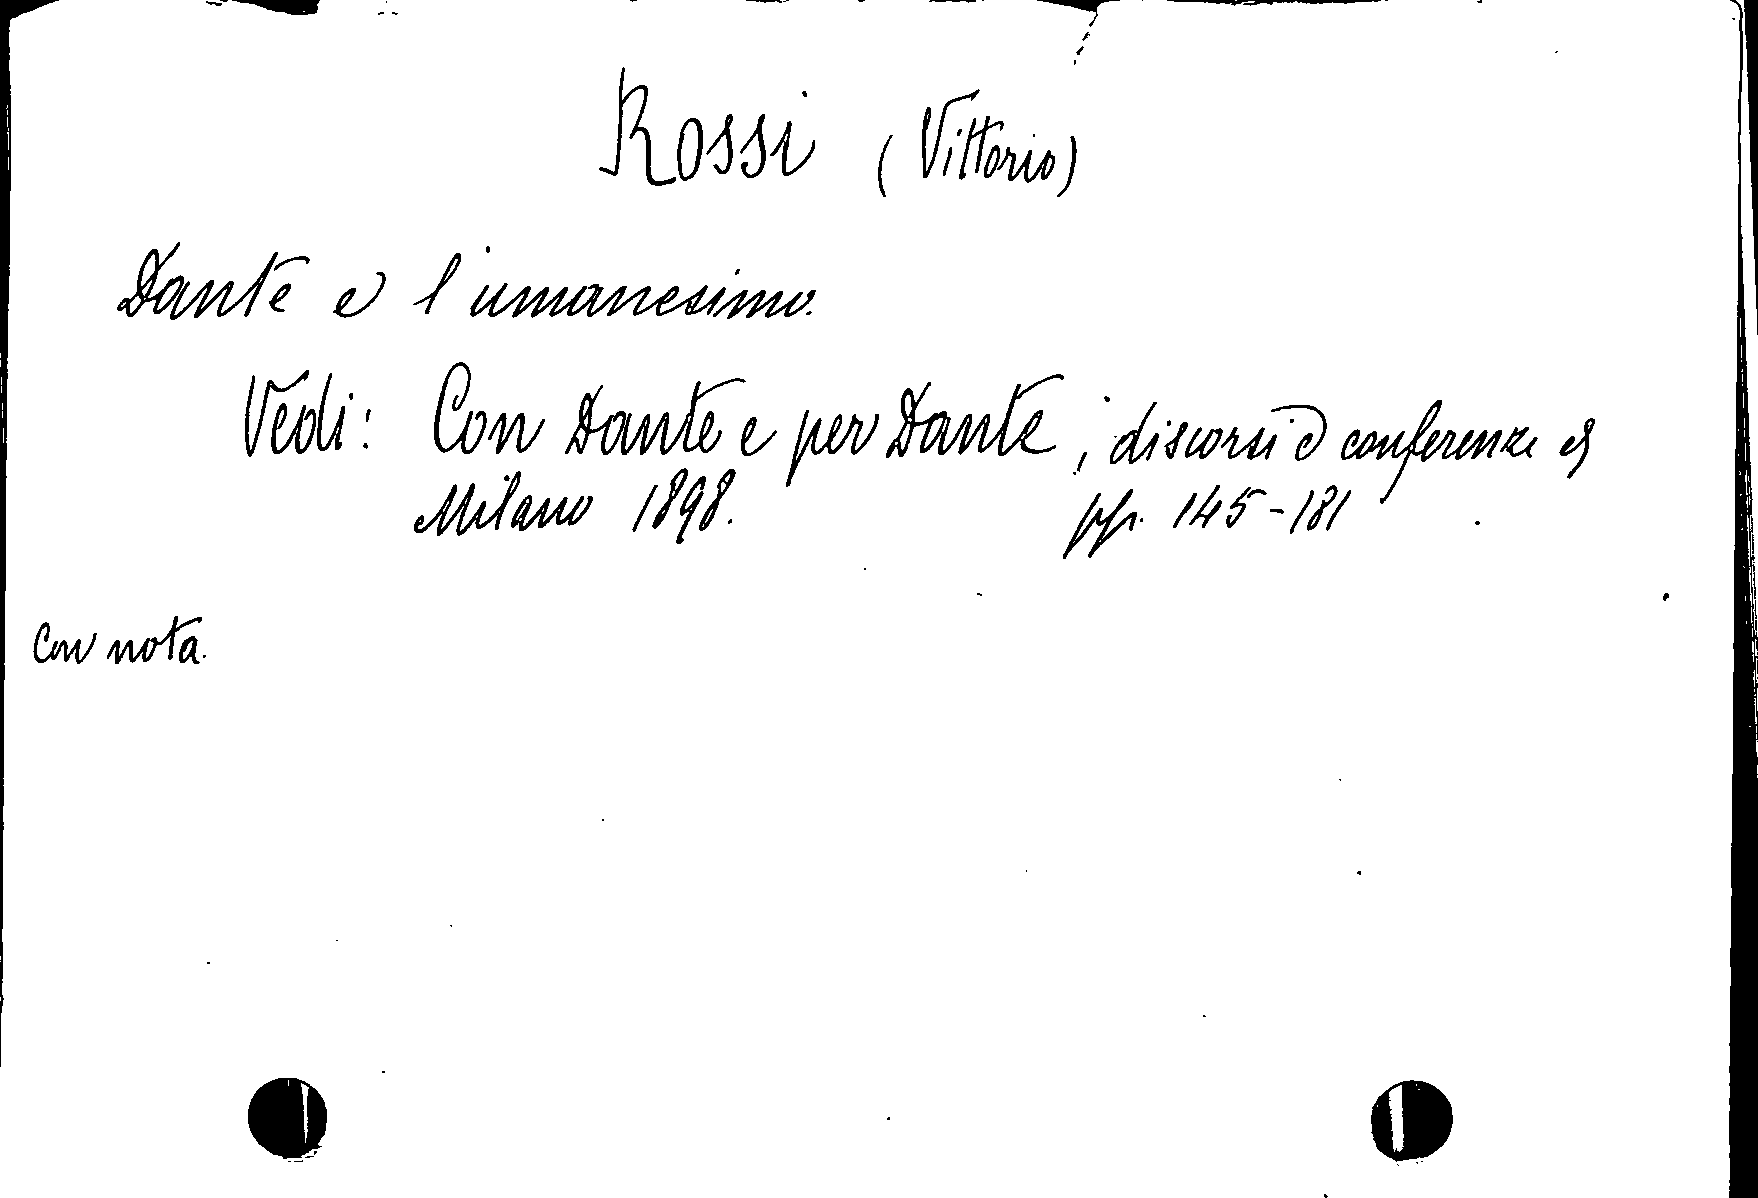 Rossi (Vittorio)
Dante e l'umanesimo.
Vedi: Con Dante e per Dante; discorsi e conferenze
Milano 1898. pp. 145-181
Con nota.